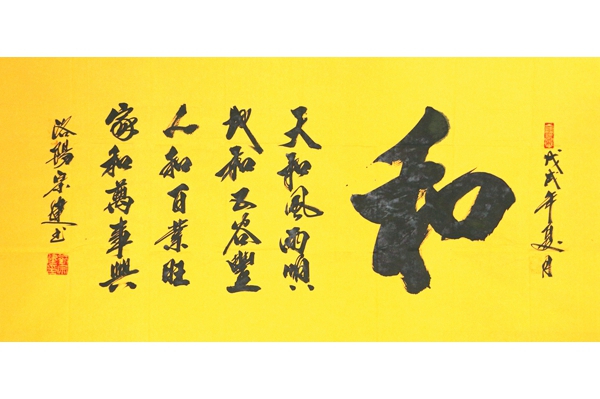 戊戌年夏月
和
天和風雨順
地和五谷豐
人和百業旺
家和萬事興
洛陽宗建书